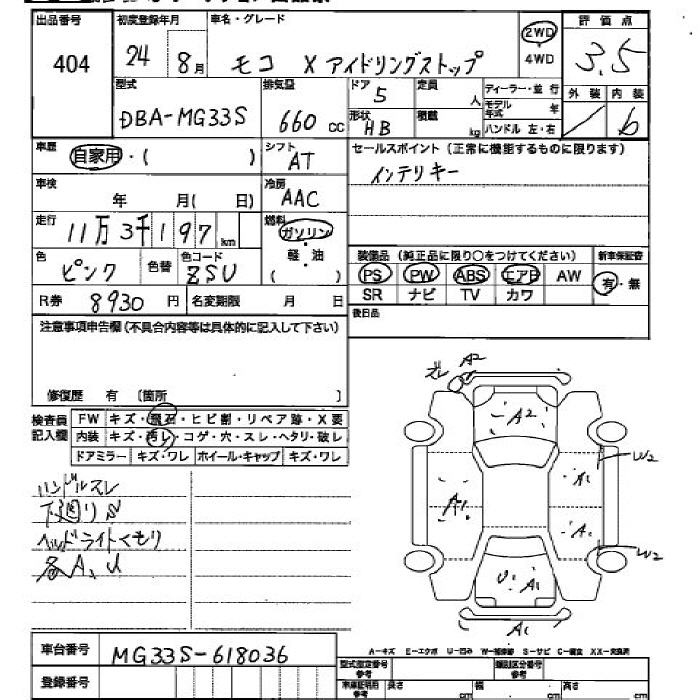 出品番号 初度登録年月 車名・グレード 2WD 評価点
404 24 8月 モコ X アイドリングストップ 4WD 3.5
型式 排気量 ドア 5 定員 人 ディーラー・並行 外装 内装
モデル年式 年
DBA-MG33S 660 cc 形状 HB 積載 kg ハンドル 左・右 / 6
車歴 自家用・( ) シフト AT セールスポイント (正常に機能するものに限ります)
インテリキー
車検 年 月( 日) 冷房 AAC
走行 11万3千197km 燃料 ガソリン
軽・油
( )
色 ピンク 色替 色コード ZSU
装備品 (純正品に限り○をつけてください) 新車保証書
PS PW ABS エアB AW 有・無
SR ナビ TV カワ
R券 8930円 名変期限 月 日 後日品
注意事項申告欄(不具合内容等は具体的に記入して下さい)
修復歴 有 〔箇所 〕
検査員記入欄 FW キズ・飛石・ヒビ割・リペア跡・X要
内装 キズ・汚レ・コゲ・穴・スレ・ヘタリ・破レ
ドアミラー キズ・ワレ ホイール・キャップ キズ・ワレ
ハンドルスレ
下廻りS
ヘッドライトくもり
各A、U
A2
A2
W2
A1
A1
A1
W2
U A1
A1
車台番号 MG33S-618036
A-キズ E-エクボ U-凹み W-補修跡 S-サビ C-腐食 XX-交換済
登録番号
型式指定番号 参考 類別区分番号 参考
車庫証明用 参考 長さ cm 幅 cm 高さ cm